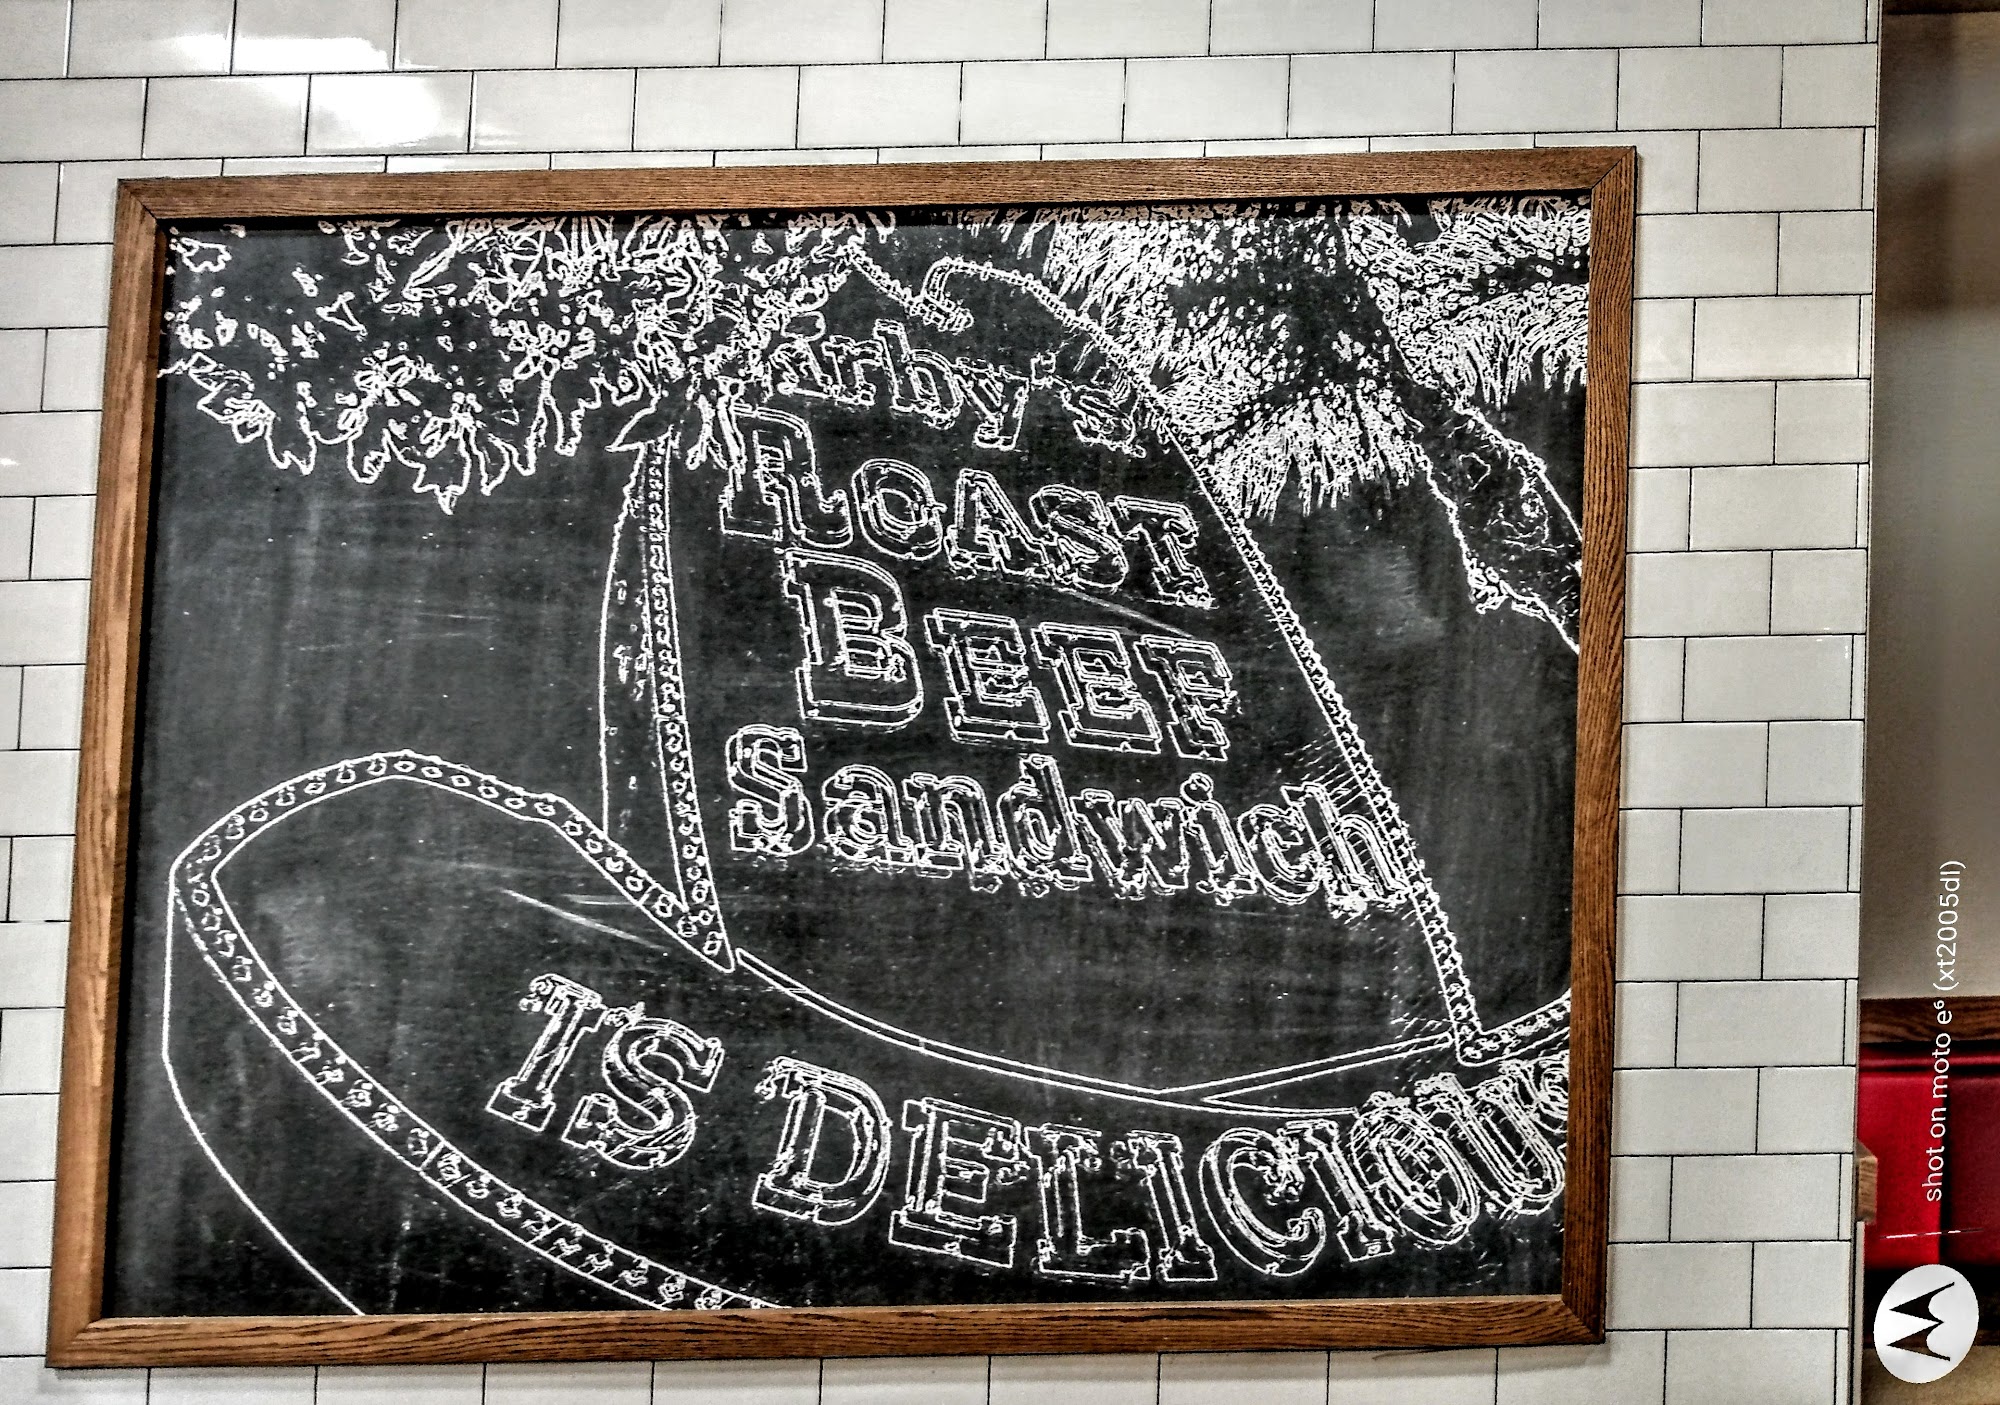 Arby's
ROAST
BEEF
Sandwich
IS DELICIOUS
shot on moto e⁶ (xt2005dl)